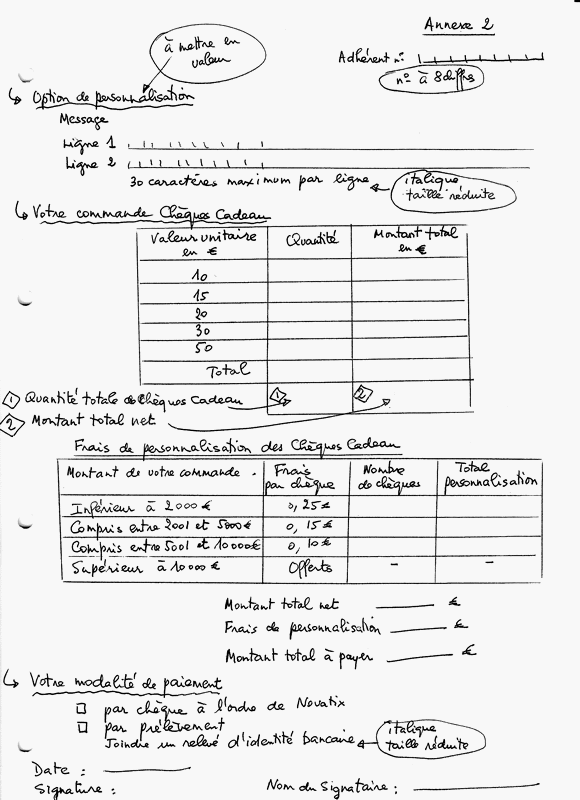 Annexe 2
à mettre en
valeur
Adhérent n°:
n° à 8 chiffres
↳ Option de personnalisation
Message
Ligne 1
Ligne 2
30 caractères maximum par ligne
italique
taille réduite
↳ Votre commande Chèques Cadeau
Valeur unitaire Quantité Montant total
en € en €
10
15
20
30
50
Total
1 2
1 Quantité totale de chèques cadeau
2 Montant total net
Frais de personnalisation des Chèques Cadeau
Montant de votre commande. Frais Nombre Total
par chèque de chèques personnalisation
Inférieur à 2000 € 0,25 €
Compris entre 2001 et 5000 € 0,15 €
Compris entre 5001 et 10000 € 0,10 €
Supérieur à 10000 € Offerts - -
Montant total net €
Frais de personnalisation €
Montant total à payer €
↳ Votre modalité de paiement
□ par chèque à l'ordre de Novatix
□ par prélèvement
Joindre un relevé d'identité bancaire
italique
taille réduite
Date :
Signature : Nom du Signataire :